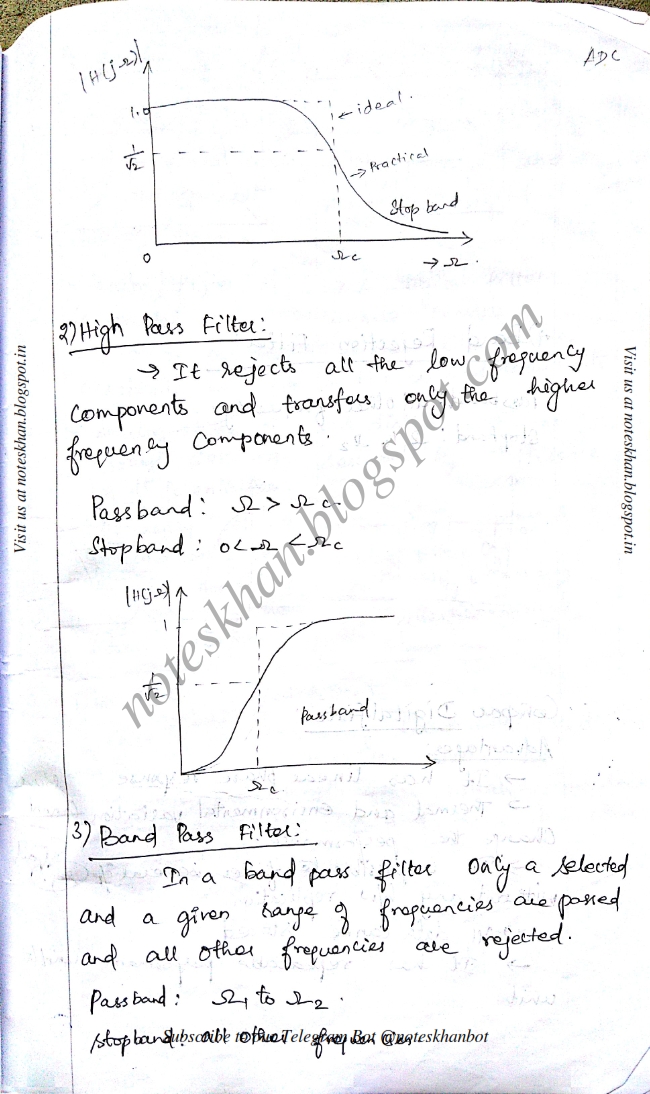 ADC
|H(jΩ)|
1.0
ideal.
1/√2
Practical
Stop band
0
Ωc
→ Ω.
2) High Pass Filter:
→ It rejects all the low frequency
components and transfers only the higher
frequency components.
Passband: Ω > Ωc.
Stopband: 0 < Ω < Ωc
|H(jΩ)|
1
1/√2
Passband
Ωc
3) Band Pass Filter:
In a band pass filter only a selected
and a given range of frequencies are passed
and all other frequencies are rejected.
Passband: Ω1 to Ω2.
stopband: all other frequencies
Subscribe to our Telegram Bot @noteskhanbot
Visit us at noteskhan.blogspot.in
Visit us at noteskhan.blogspot.in
noteskhan.blogspot.com